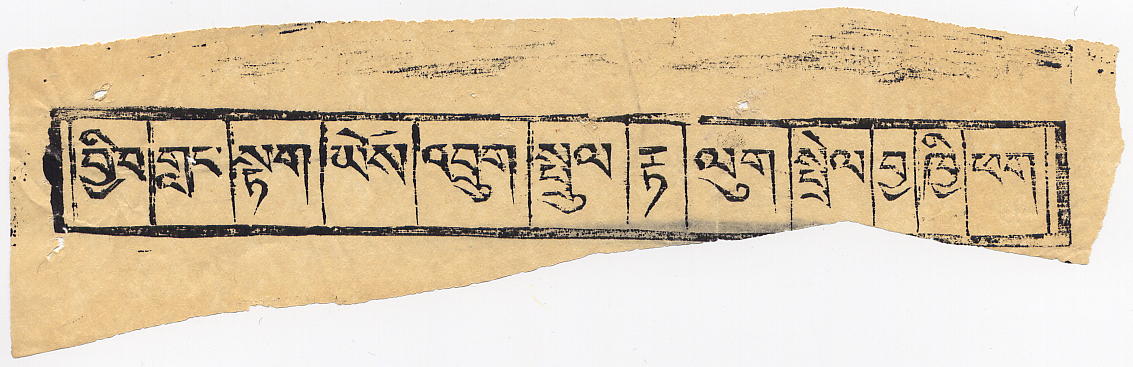 བྱིབ གླང སྟག ཡོས འབྲུག སྦྲུལ རྟ ལུག སྤྲེལ བྱ ཁྱི ཕག